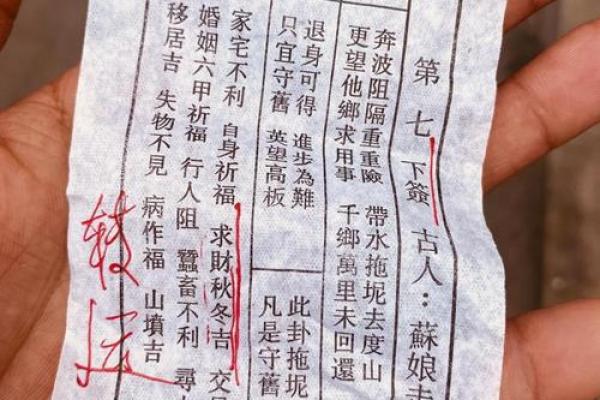 第七 下簽 古人：蘇娘
奔波阻隔重重險 帶水拖坭去度山
更望他鄉求用事 千鄉萬里未回還
退身可得 進步為難
只宜守舊 英望高板
此卦拖坭
凡是守舊
家宅不利 自身祈福 求財秋冬吉 交
婚姻六甲祈福 行人阻 蠶畜不利 尋
移居吉 失物不見 病作福 山墳吉
转运